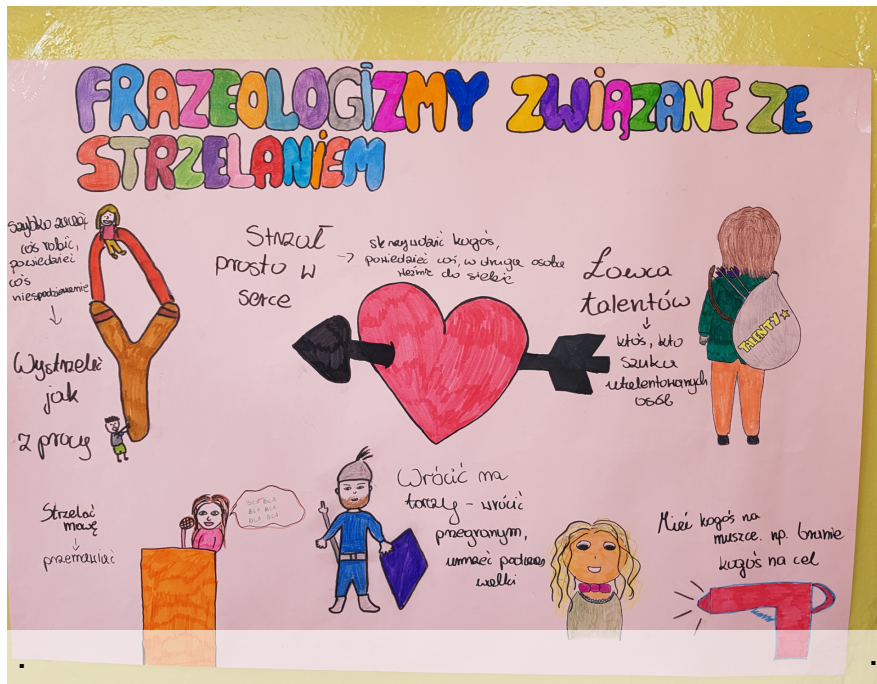 FRAZEOLOGIZMY ZWIĄZANE ZE
STRZELANIEM
szybko zacząć
coś robić,
powiedzieć
coś
niespodziewanie
Wystrzelić
jak
z procy
Strzał
prosto w
serce
skrzywdzić kogoś,
powiedzieć coś, w druga osoba
weźmie do siebie
Łowca
talentów
ktoś, kto
szuka
utalentowanych
osób
TALENTY
Strzelać
mowę
przemawiać
BLA BLA
BLA BLA
BLA BLA
Wrócić na
tarczy - wrócić
przegranym,
umrzeć podczas
walki
Mieć kogoś na
muszce. np. branie
kogoś na cel